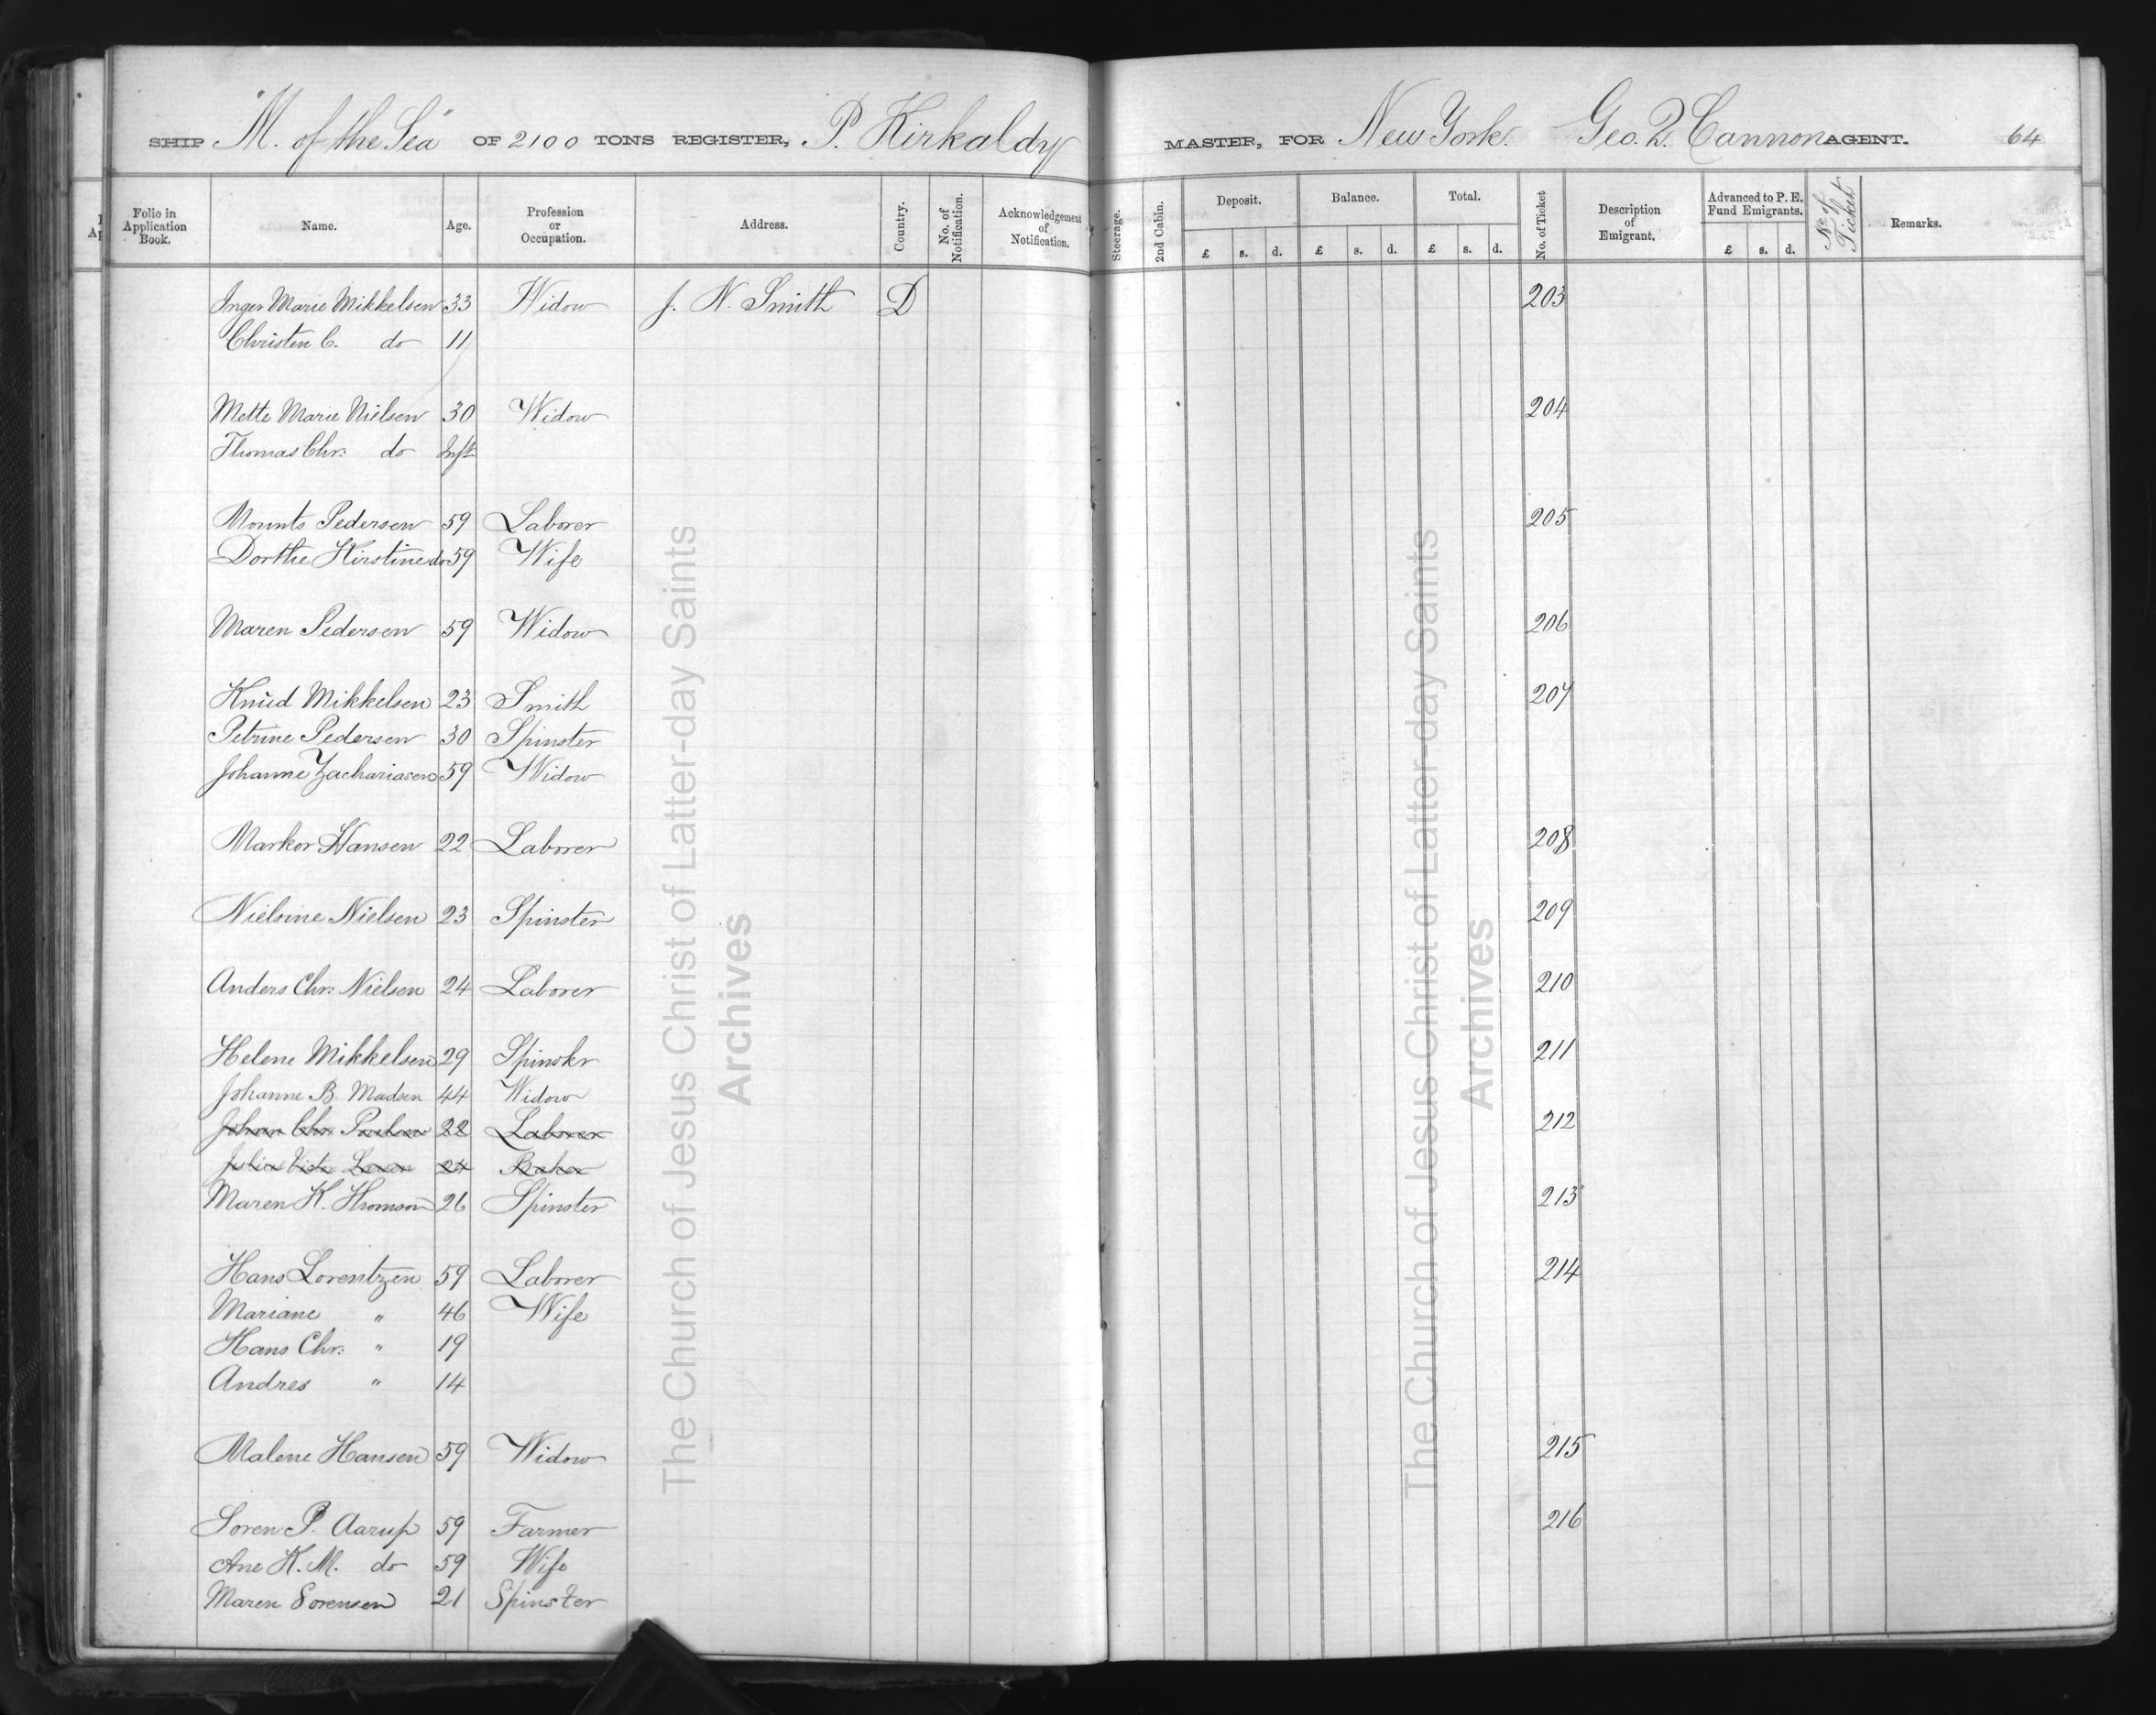 SHIP "M. of the Sea" OF 2100 TONS REGISTER, P. Kirkaldy MASTER, FOR New York. Geo. Q. Cannon AGENT. 64
Folio in Application Book. Name. Age. Profession or Occupation. Address. Country. No. of Notification. Acknowledgement of Notification. Steerage. 2nd Cabin. Deposit. Balance. Total. No. of Ticket Description of Emigrant. Advanced to P. E. Fund Emigrants. No of Ticket Remarks.
£ s. d. £ s. d. £ s. d. £ s. d.
Inger Marie Mikkelsen 33 Widow J. N. Smith D 203
Christen C. do 11
Mette Marie Nielsen 30 Widow 204
Thomas Chr: do Inft
Mounts Pedersen 59 Laborer 205
Dorthe Kirstine do 59 Wife
Maren Pedersen 59 Widow 206
Knud Mikkelsen 23 Smith 207
Petrine Pedersen 30 Spinster
Johanne Zachariasen 59 Widow
Markor Hansen 22 Laborer 208
Nielsine Nielsen 23 Spinster 209
Anders Chr: Nielsen 24 Laborer 210
Helene Mikkelsen 29 Spinster 211
Johanne B. Madsen 44 Widow
Johan Chr. Poulsen 22 Laborer 212
24 Baker
Maren K. Thomson 26 Spinster 213
Hans Lorentzen 59 Laborer 214
Mariane " 46 Wife
Hans Chr: " 19
Andres " 14
Malene Hansen 59 Widow 215
Soren P. Aarup 59 Farmer 216
Ane K. M. do 59 Wife
Maren Sorensen 21 Spinster
The Church of Jesus Christ of Latter-day Saints
Archives
The Church of Jesus Christ of Latter-day Saints
Archives